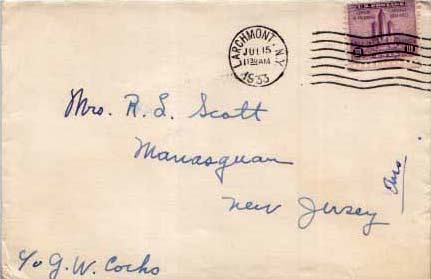 LARCHMONT, N.Y.
JUL 15
1933
U.S. POSTAGE
Mrs. R. L. Scott
Manasquan
New Jersey
Ans
c/o G. W. Cocks